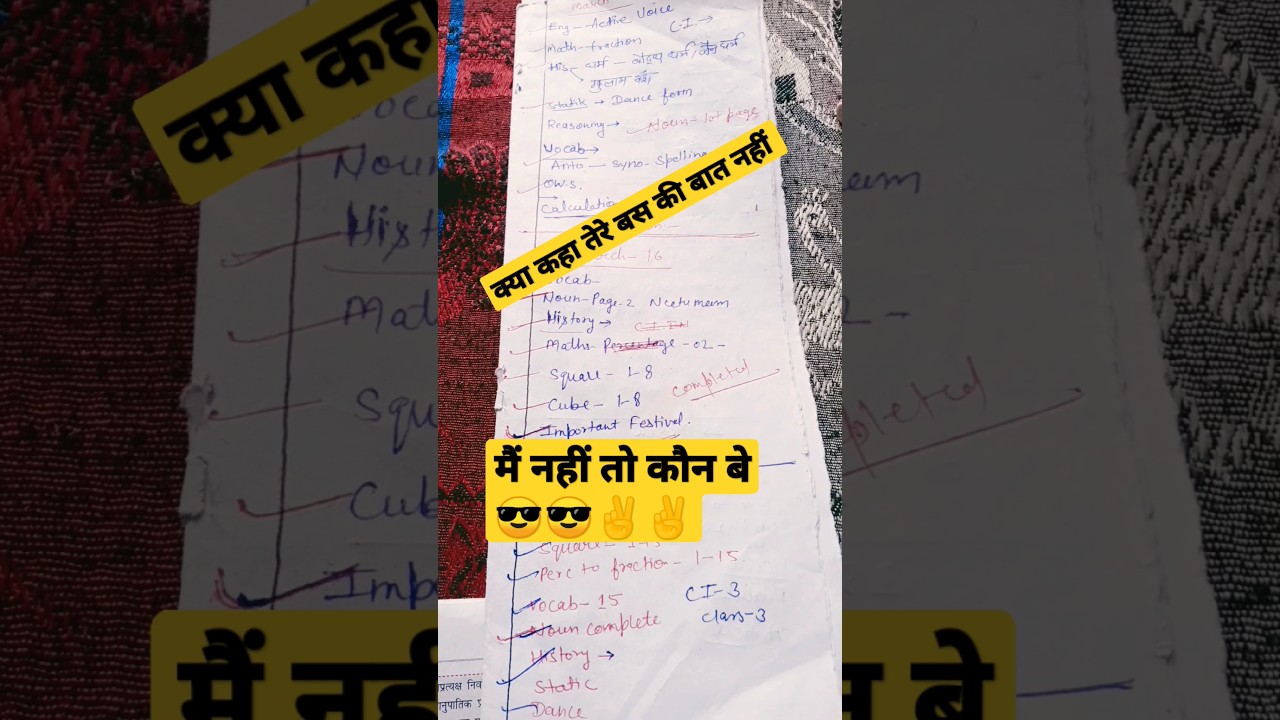 Eng - Active Voice
C.I. →
Math - fraction
His - धर्म - बौद्ध धर्म, जैन धर्म
गुलाम वंश
Statik → Dance form
Reasoning →
Noun - 1st page
Vocab →
Anto - Syno - Spelling
O.W.S.
Calculatio
क्या कहा तेरे बस की बात नहीं
16
Vocab -
Noun - Page - 2 Neetu mam
History →
Maths - Percentage - 02 -
Square - 1-8
completed
Cube - 1-8
Important Festival.
मैं नहीं तो कौन बे
😎😎✌️✌️
Square -
Perc to fraction - 1-15
Vocab - 15
CI - 3
Noun complete
Class - 3
History →
Static
Dance
प्रत्यक्ष निव
नुपातिक प्र
क्या कहा
Noun
Hist
Mat
Squ
Cub
Imp
मैं नहीं
बे